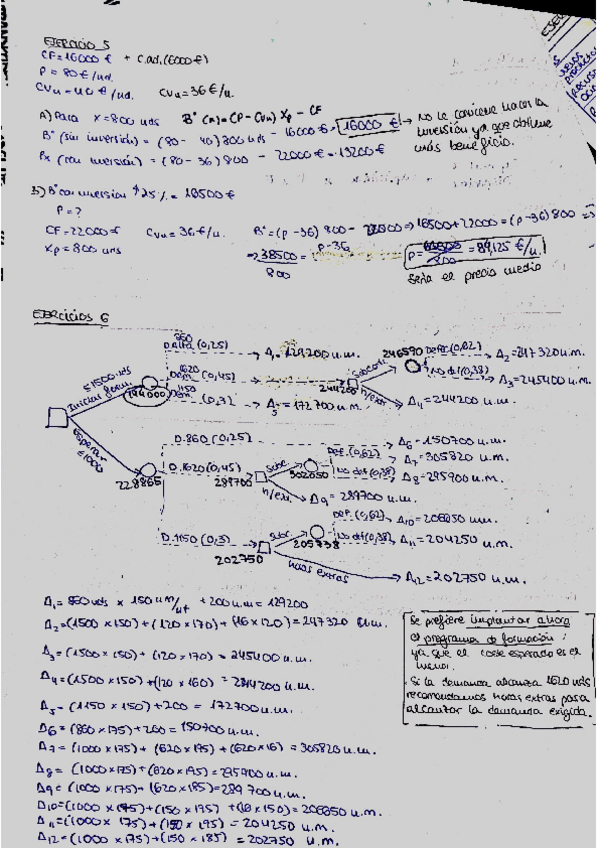 EJERCICIO 5
CF = 16000 € + C.ad. (6000 €)
P = 80 € / ud.
CVu = 40 € / ud. CVu = 36 € / u.
A) Para X = 800 uds B° (n) = (P - CVu) Xp - CF
B° (sin inversión) = (80 - 40) 800 uds - 16000 € = 16000 € → No le conviene hacer la inversión ya que obtiene más beneficio.
Bx (con inversión) = (80 - 36) 800 - 22000 € = 13200 €
B) B° con inversión ↑ 25% = 16500 €
P = ?
CF = 22000 € CVu = 36 € / u. B° = (p - 36) 800 - 22000 ⇒ 16500 + 22000 = (p - 36) 800 ⇒
Xp = 800 uds ⇒ 38500 / 800 = p - 36 p = = 84,125 € / u.
Sería el precio medio
EJERCICIOS 6
860
D.Alta (0,25) → Δ1 = 129200 u.m.
1620
Dem. (0,45) 244200 Subcont. 246590 Defec (0,62) → Δ2 = 247320 u.m.
No def (0,38) → Δ3 = 245400 u.m.
h/extr → Δ4 = 244200 u.m.
1150
Dem. (0,3) → Δ5 = 172700 u.m.
≤1500 uds
Iniciar form.
194000
Esperar
≤1000
228865
D.860 (0,25) → Δ6 = 150700 u.m.
D.1620 (0,45) 289700 subc. 302050 Def. (0,62) → Δ7 = 305820 u.m.
No def (0,38) → Δ8 = 295900 u.m.
h/ex. → Δ9 = 289700 u.m.
D.1150 (0,3) 202750 subc. 205738 Def. (0,62) → Δ10 = 206650 u.m.
No def (0,38) → Δ11 = 204250 u.m.
horas extras → Δ12 = 202750 u.m.
Δ1 = 860 uds × 150 um/ut + 200 u.m = 129200
Δ2 = (1500 × 150) + (120 × 170) + (16 × 120) = 247320 u.m.
Δ3 = (1500 × 150) + (120 × 170) = 245400 u.m.
Δ4 = (1500 × 150) + (120 × 160) = 244200 u.m.
Δ5 = (1150 × 150) + 200 = 172700 u.m.
Δ6 = (860 × 175) + 200 = 150700 u.m.
Δ7 = (1000 × 175) + (620 × 195) + (620 × 16) = 305820 u.m.
Δ8 = (1000 × 175) + (620 × 195) = 295900 u.m.
Δ9 = (1000 × 175) + (620 × 185) = 289700 u.m.
Δ10 = (1000 × 175) + (150 × 195) + (16 × 150) = 206650 u.m.
Δ11 = (1000 × 175) + (150 × 195) = 204250 u.m.
Δ12 = (1000 × 175) + (150 × 185) = 202750 u.m.
Se prefiere implantar ahora
el programa de formación;
ya que el coste esperado es el
menor.
- Si la demanda alcanza 1620 uds
recomendamos horas extras para
alcanzar la demanda exigida.